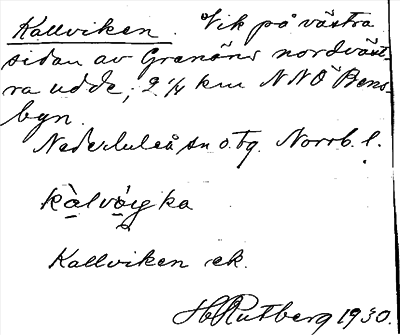 Kallviken. Vik på västra
sidan av Granöns nordväst-
ra udde; 2 1/4 km NNÖ Bens-
byn.
Nederluleå sn o. tg. Norrb. l.
kàlvə̀yka
Kallviken ek.
H Rutberg 1930.